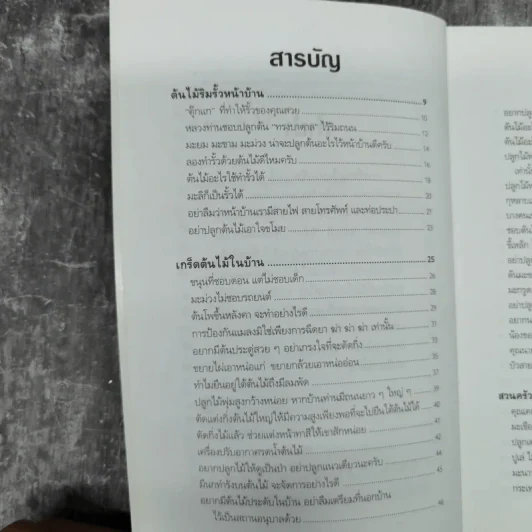 สารบัญ
ต้นไม้ริมรั้วหน้าบ้าน 9
"ตุ๊กแก" ที่ทำให้รั้วของคุณสวย 10
หลวงท่านชอบปลูกต้น "ทรงบาดาล" ไว้ริมถนน 13
มะยม มะขาม มะม่วง น่าจะปลูกต้นอะไรไว้หน้าบ้านดีครับ 14
ลองทำรั้วด้วยต้นไม้ดีไหมครับ 16
ต้นไม้อะไรใช้ทำรั้วได้ 18
มะลิก็เป็นรั้วได้ 20
อย่าลืมว่าหน้าบ้านเรามีสายไฟ สายโทรศัพท์ และท่อประปา 21
อย่าปลูกต้นไม้เอาใจขโมย 23
เกร็ดต้นไม้ในบ้าน 25
ขนุนที่ชอบตอน แต่ไม่ชอบเด็ก 26
มะม่วงไม่ชอบรถยนต์ 28
ต้นโพขึ้นหลังคา จะทำอย่างไรดี 29
การป้องกันแมลงมิใช่เพียงการฉีดยา ฆ่า ฆ่า ฆ่า เท่านั้น 31
อยากมีต้นประดู่สวย ๆ อย่าเกรงใจที่จะตัดกิ่ง
ขยายไผ่เอาหน่อแก่ ขยายกล้วยเอาหน่ออ่อน
ทำไมยืนอยู่ใต้ต้นไม้ถึงมีลมพัด 37
ปลูกไม้พุ่มสูงกว้างหน่อย หากบ้านท่านมีถนนยาว ๆ ใหญ่ ๆ
ตัดแต่งกิ่งต้นไม้ใหญ่ให้มีความสูงเพียงพอที่จะไปยืนใต้ต้นไม้ได้ 40
ตัดกิ่งไม้แล้ว ช่วยแต่งหน้าทาสีให้เขาสักหน่อย 41
เครื่องปรับอากาศรดน้ำต้นไม้ 42
อยากปลูกไม้ให้ดูเป็นป่า อย่าปลูกแนวเดียวนะครับ 44
มีนกทำรังบนต้นไม้ จะจัดการอย่างไรดี 45
อยากมีต้นไม้ประดับในบ้าน อย่าลืมเตรียมที่นอกบ้าน
ไว้เป็นสถานอนุบาลด้วย 46
สวนครัว